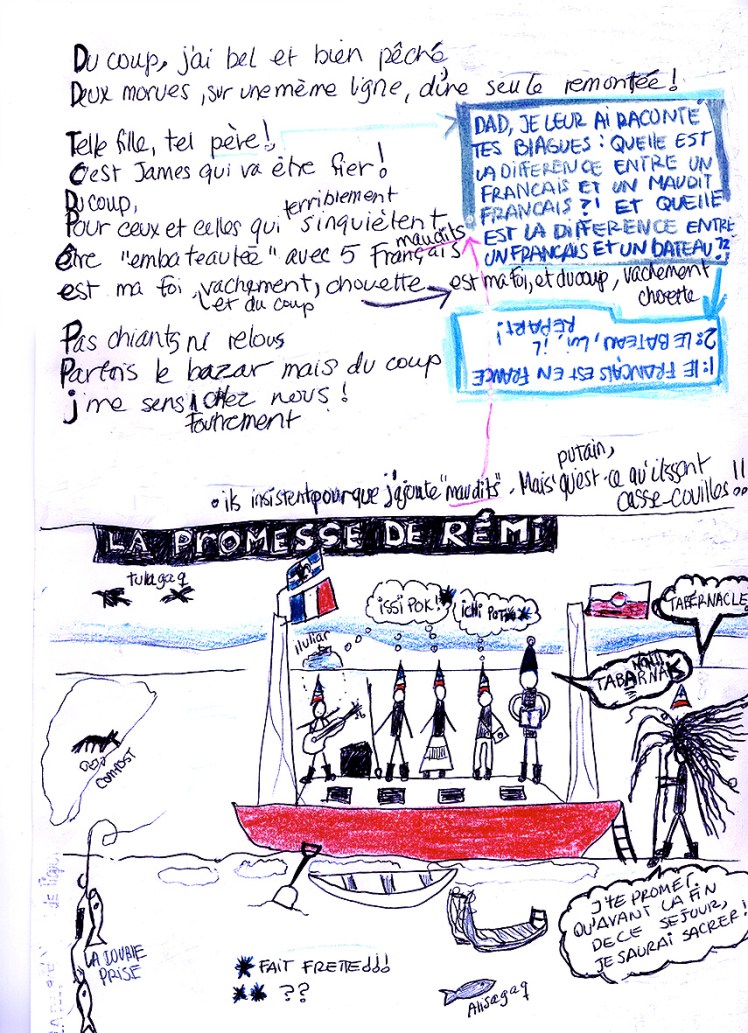 Du coup, j'ai bel et bien pêché
Deux morues, sur une même ligne, d'une seule remontée!
Telle fille, tel père!
C'est James qui va être fier!
Du coup,
terriblement
Pour ceux et celles qui s'inquiètent
maudits
Être "embateautée" avec 5 Français
est ma foi, vachement, chouette
et du coup
est ma foi, et du coup, vachement
chouette
Pas chiants, ni relous
Parfois le bazar mais du coup
j'me sens chez nous!
foutrement
DAD, JE LEUR AI RACONTÉ
TES BLAGUES : QUELLE EST
LA DIFFERENCE ENTRE UN
FRANCAIS ET UN MAUDIT
FRANCAIS ?! ET QUELLE
EST LA DIFFERENCE ENTRE
UN FRANCAIS ET UN BATEAU ??
1: LE FRANÇAIS EST EN FRANCE
2: LE BATEAU, LUI, IL
REPART!
• ils insistent pour que j'ajoute "maudits". Mais qu'est-ce qu'ils sont
putain,
casse-couilles!!
LA PROMESSE DE RÉMI
tulugaq
iluliar
ISSI POK!*
ICHI POT**
TABERNACLE
NON!!
TABARNAK
COMPOST
LA DOUBLE
PRISE
* FAIT FRETTE!!!
** ??
Alisagaq
J'TE PROMET
QU'AVANT LA FIN
DE CE SEJOUR,
JE SAURAI SACRER!